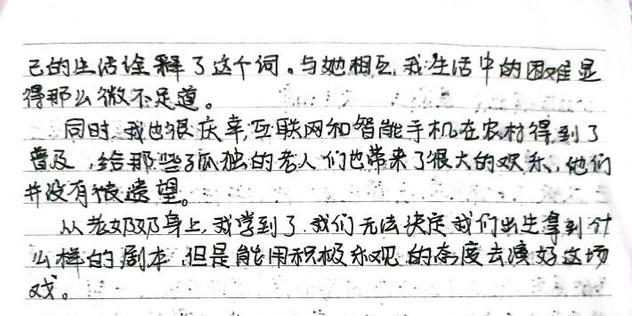 己的生活诠释了这个词。与她相互,我生活中的困难显
得那么微不足道。
同时,我也很庆幸,互联网和智能手机在农村得到了
普及,给那些孤独的老人们也带来了很大的欢乐,他们
并没有被遗望。
从老奶奶身上,我学到了,我们无法决定我们出生拿到什
么样的剧本,但是能用积极乐观的态度去演好这场
戏。